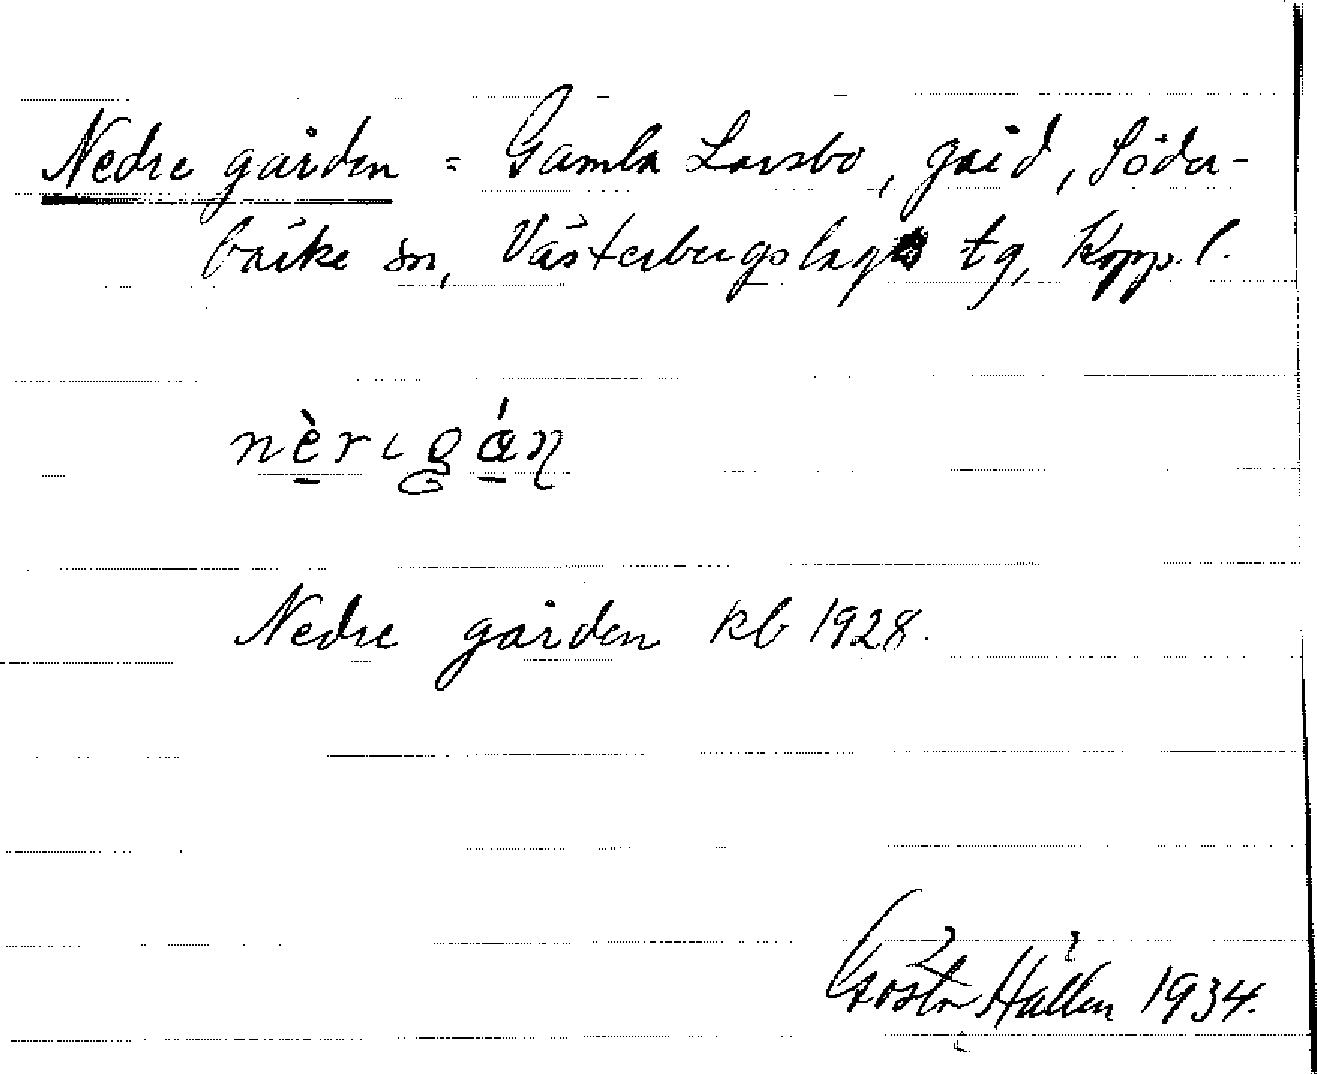 Nedre gården = Gamla Larsbo, gård, Söder-
bärke sn, Västerbergslags tg, Kopp. l.
nèrɩgán
Nedre gården kb 1928.
Gösta Hallén 1934.